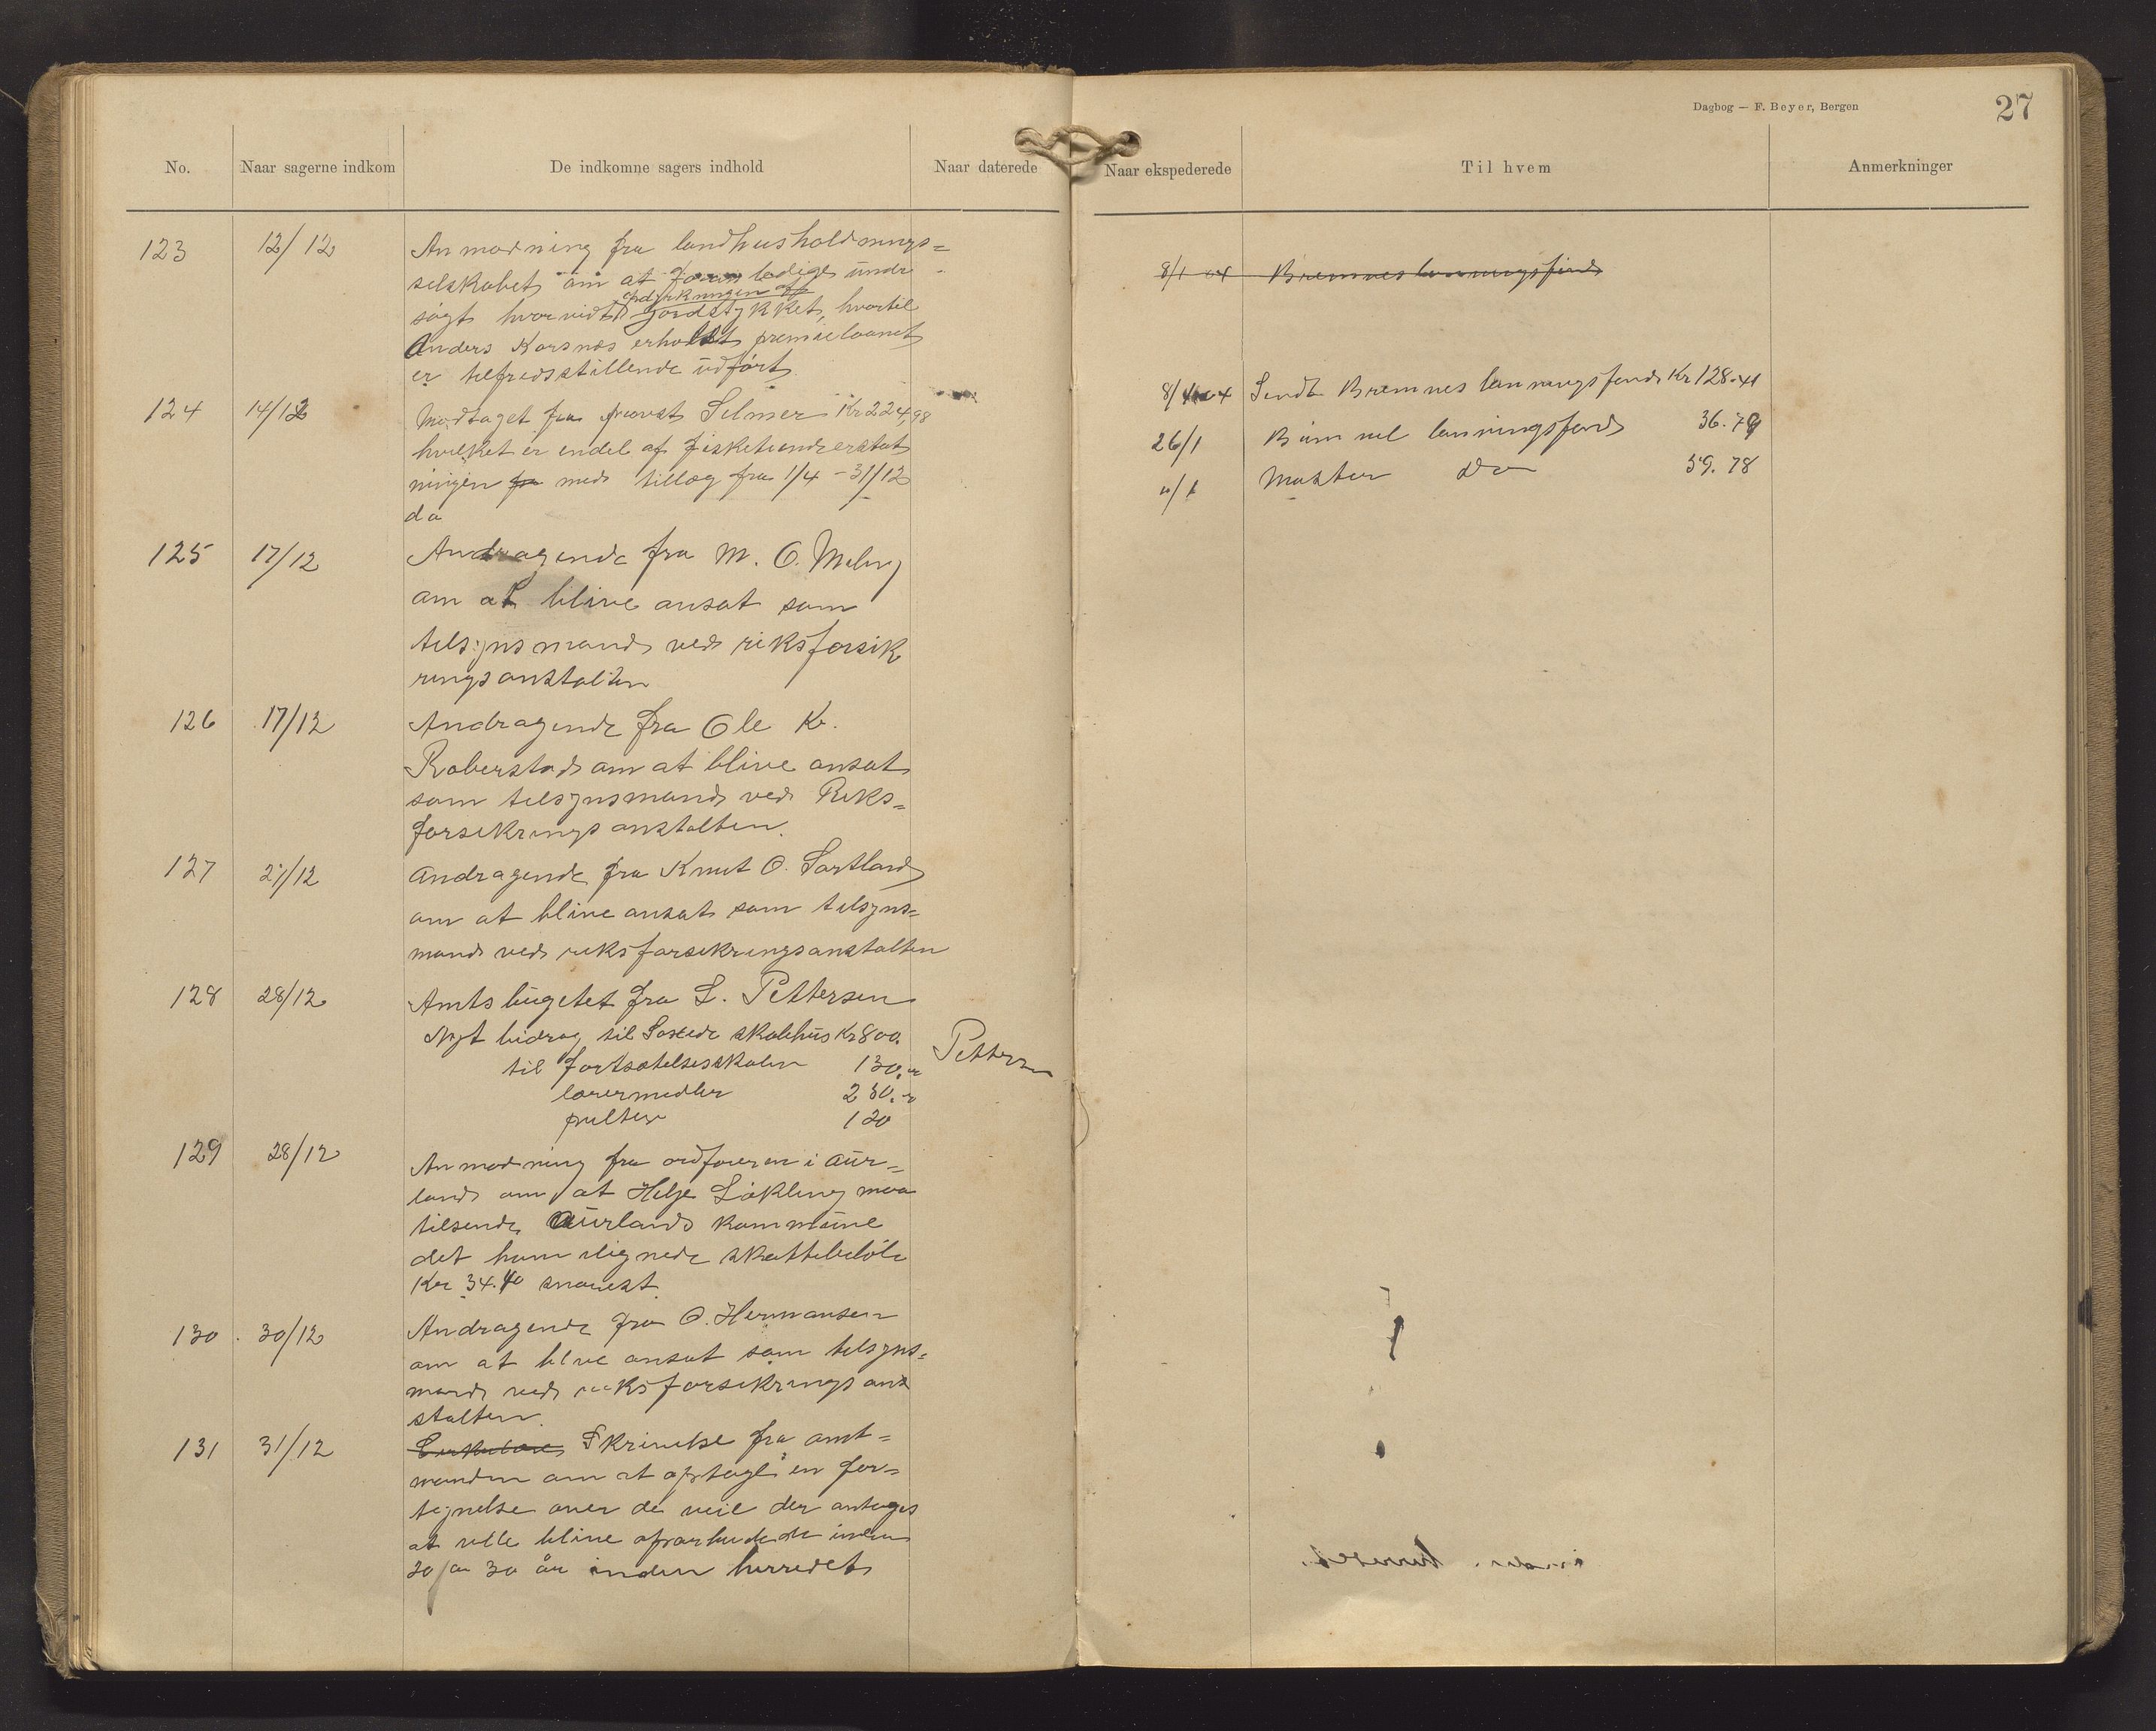 Dagbog — F. Beyer, Bergen
27
No. Naar sagerne indkom De indkomne sagers indhold Naar daterede
Naar ekspederede Til hvem Anmerkninger
123 12/12 Anmodning fra landhusholdnings=
selskabet om at ledige undr
opdyrkningen af
søgt hvorvidt jordstykket, hvortil
Anders Korsnæs erholdt premielaanet
er tilfredsstillende udført
124 14/12 Modtaget fra provst Selmer Kr 224,98
hvilket er endel af fisketiendeerstat
ningen fra med tillæg fra 1/4 - 31/12
da
125 17/12 Andragende fra M. O. Meling
om at blive ansat som
tilsynsmand ved riksforsik
ringsanstalten
126 17/12 Andragende fra Ole K.
Roberstad om at blive ansat
som tilsynsmand ved Riks=
forsikringsanstalten.
127 27/12 Andragende fra Knut O. Sortland
om at blive ansat som tilsyns=
mand ved riksforsikringsanstalten
128 28/12 Amtsbugetet fra L. Pettersen
Nyt bidrag til skolehus Kr 800.
til fortsættelsesskolen 130.
lærermidler 230.
pulter 120
Pettersen
129 28/12 Anmodning fra ordføreren i Aur=
land om at Helje Løkling maa
tilsende Aurlands kommune
det ham ilignede skattebeløb
Kr 34.40 snarest.
130 30/12 Andragende fra O. Hermansen
om at blive ansat som tilsyns=
mand ved riksforsikringsans
stalten.
131 31/12 Cirkulære Skrivelse fra amt=
manden om at optage en for=
tegnelse over de veie der antages
at ville blive oparbeidede inden
20 a 30 år inden herredet
8/1 04 Bremnes lønningsfond
8/1 04 Sendt Bremnes lønningsfond Kr 128.41
26/1 Bømmel lønningsfond 36.79
"/1 Moster Do 59.78